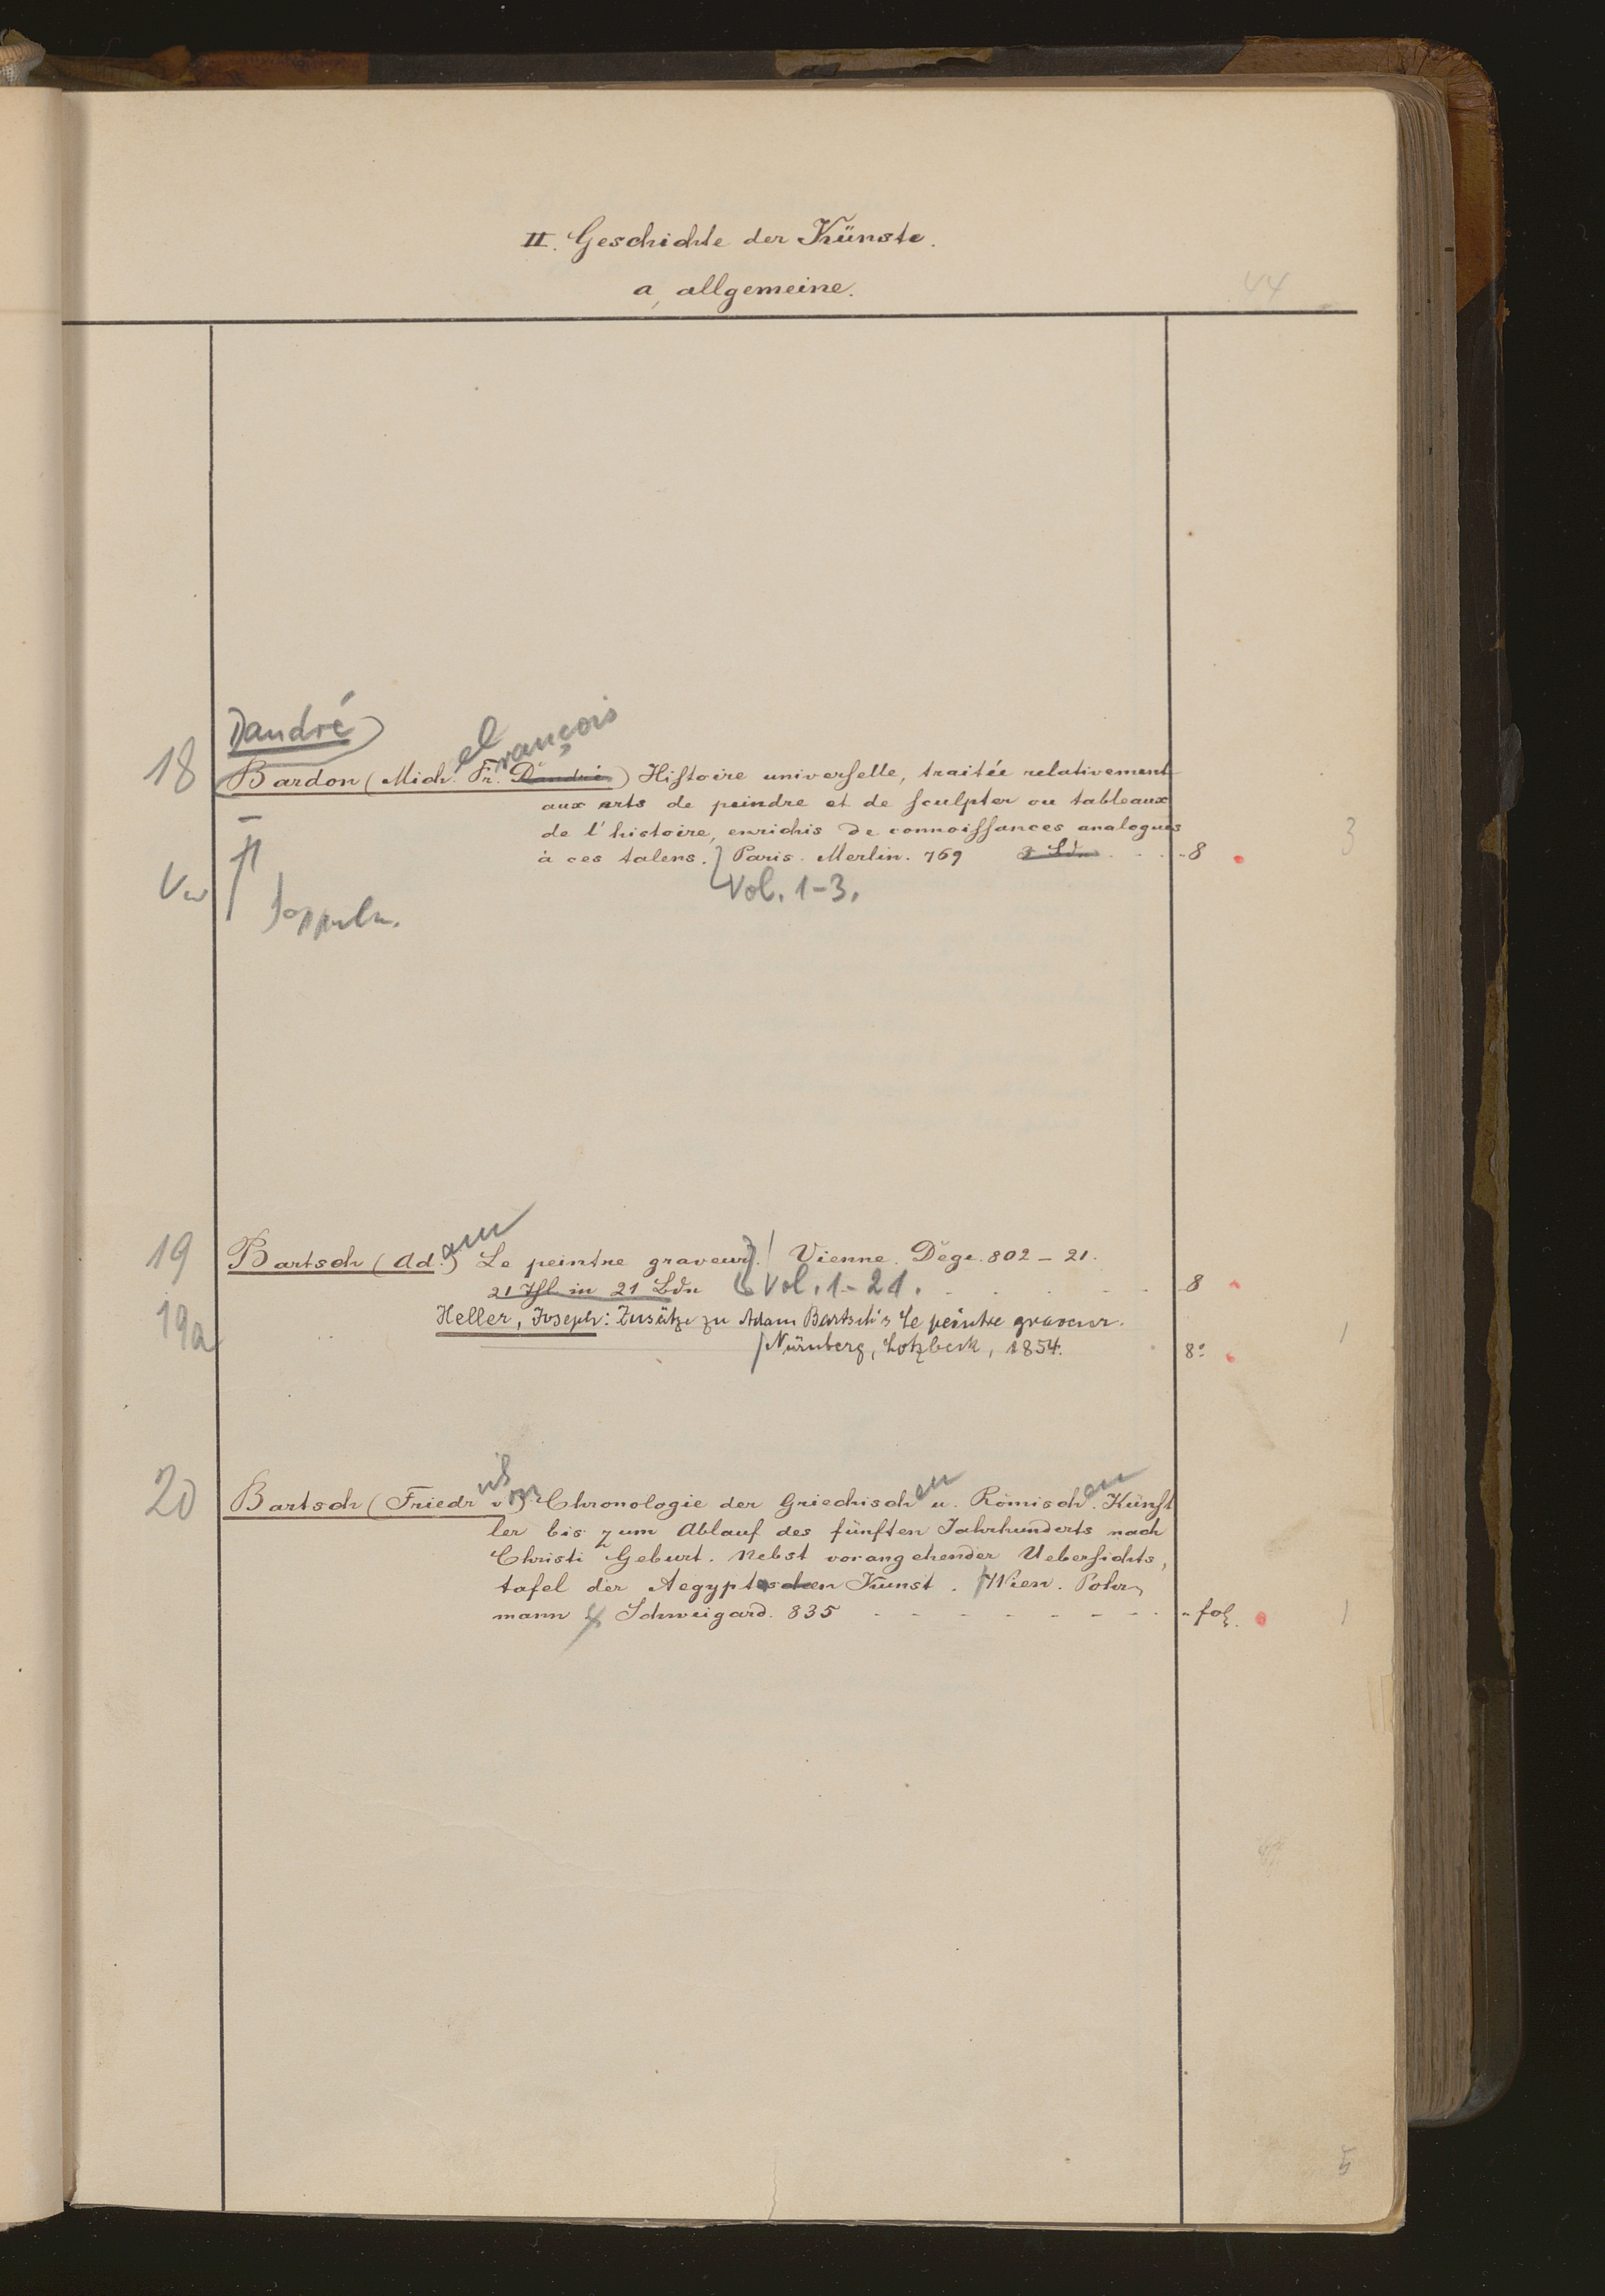 II. Geschichte der Künste.
a, allgemeine.
44
Dandré
18 Bardon (Mich.el Fr.ançois Dandré) Histoire universelle, traitée relativement
aux arts de peindre et de sculpter ou tableaux
de l'histoire, enrichis de connoissances analogues
à ces talens. Paris. Merlin. 769 3 Bde - 8 3
Vol. 1-3.
19 Bartsch (Ad.am) Le peintre graveur. Vienne. Dege. 802 - 21.
21 Thl in 21 Bdn Vol. 1-21. 8
19a Heller, Joseph: Zusätze zu Adam Bartsch's Le peintre graveur. 1
Nürnberg, Lotzbeck, 1854. 8°
20 Bartsch (Friedrich von) Chronologie der Griechischen u. Römischen Künst
ler bis zum Ablauf des fünften Jahrhunderts nach
Christi Geburt. Nebst vorangehender Uebersichts,
tafel der Aegyptischen Kunst. Wien. Pohr,
mann & Schweigard. 835 - fol. 1
5